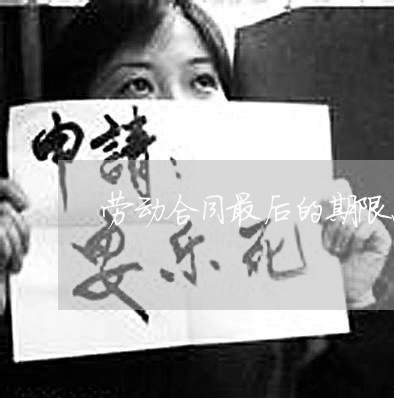 申請：
劳动合同最后的期限
安乐死